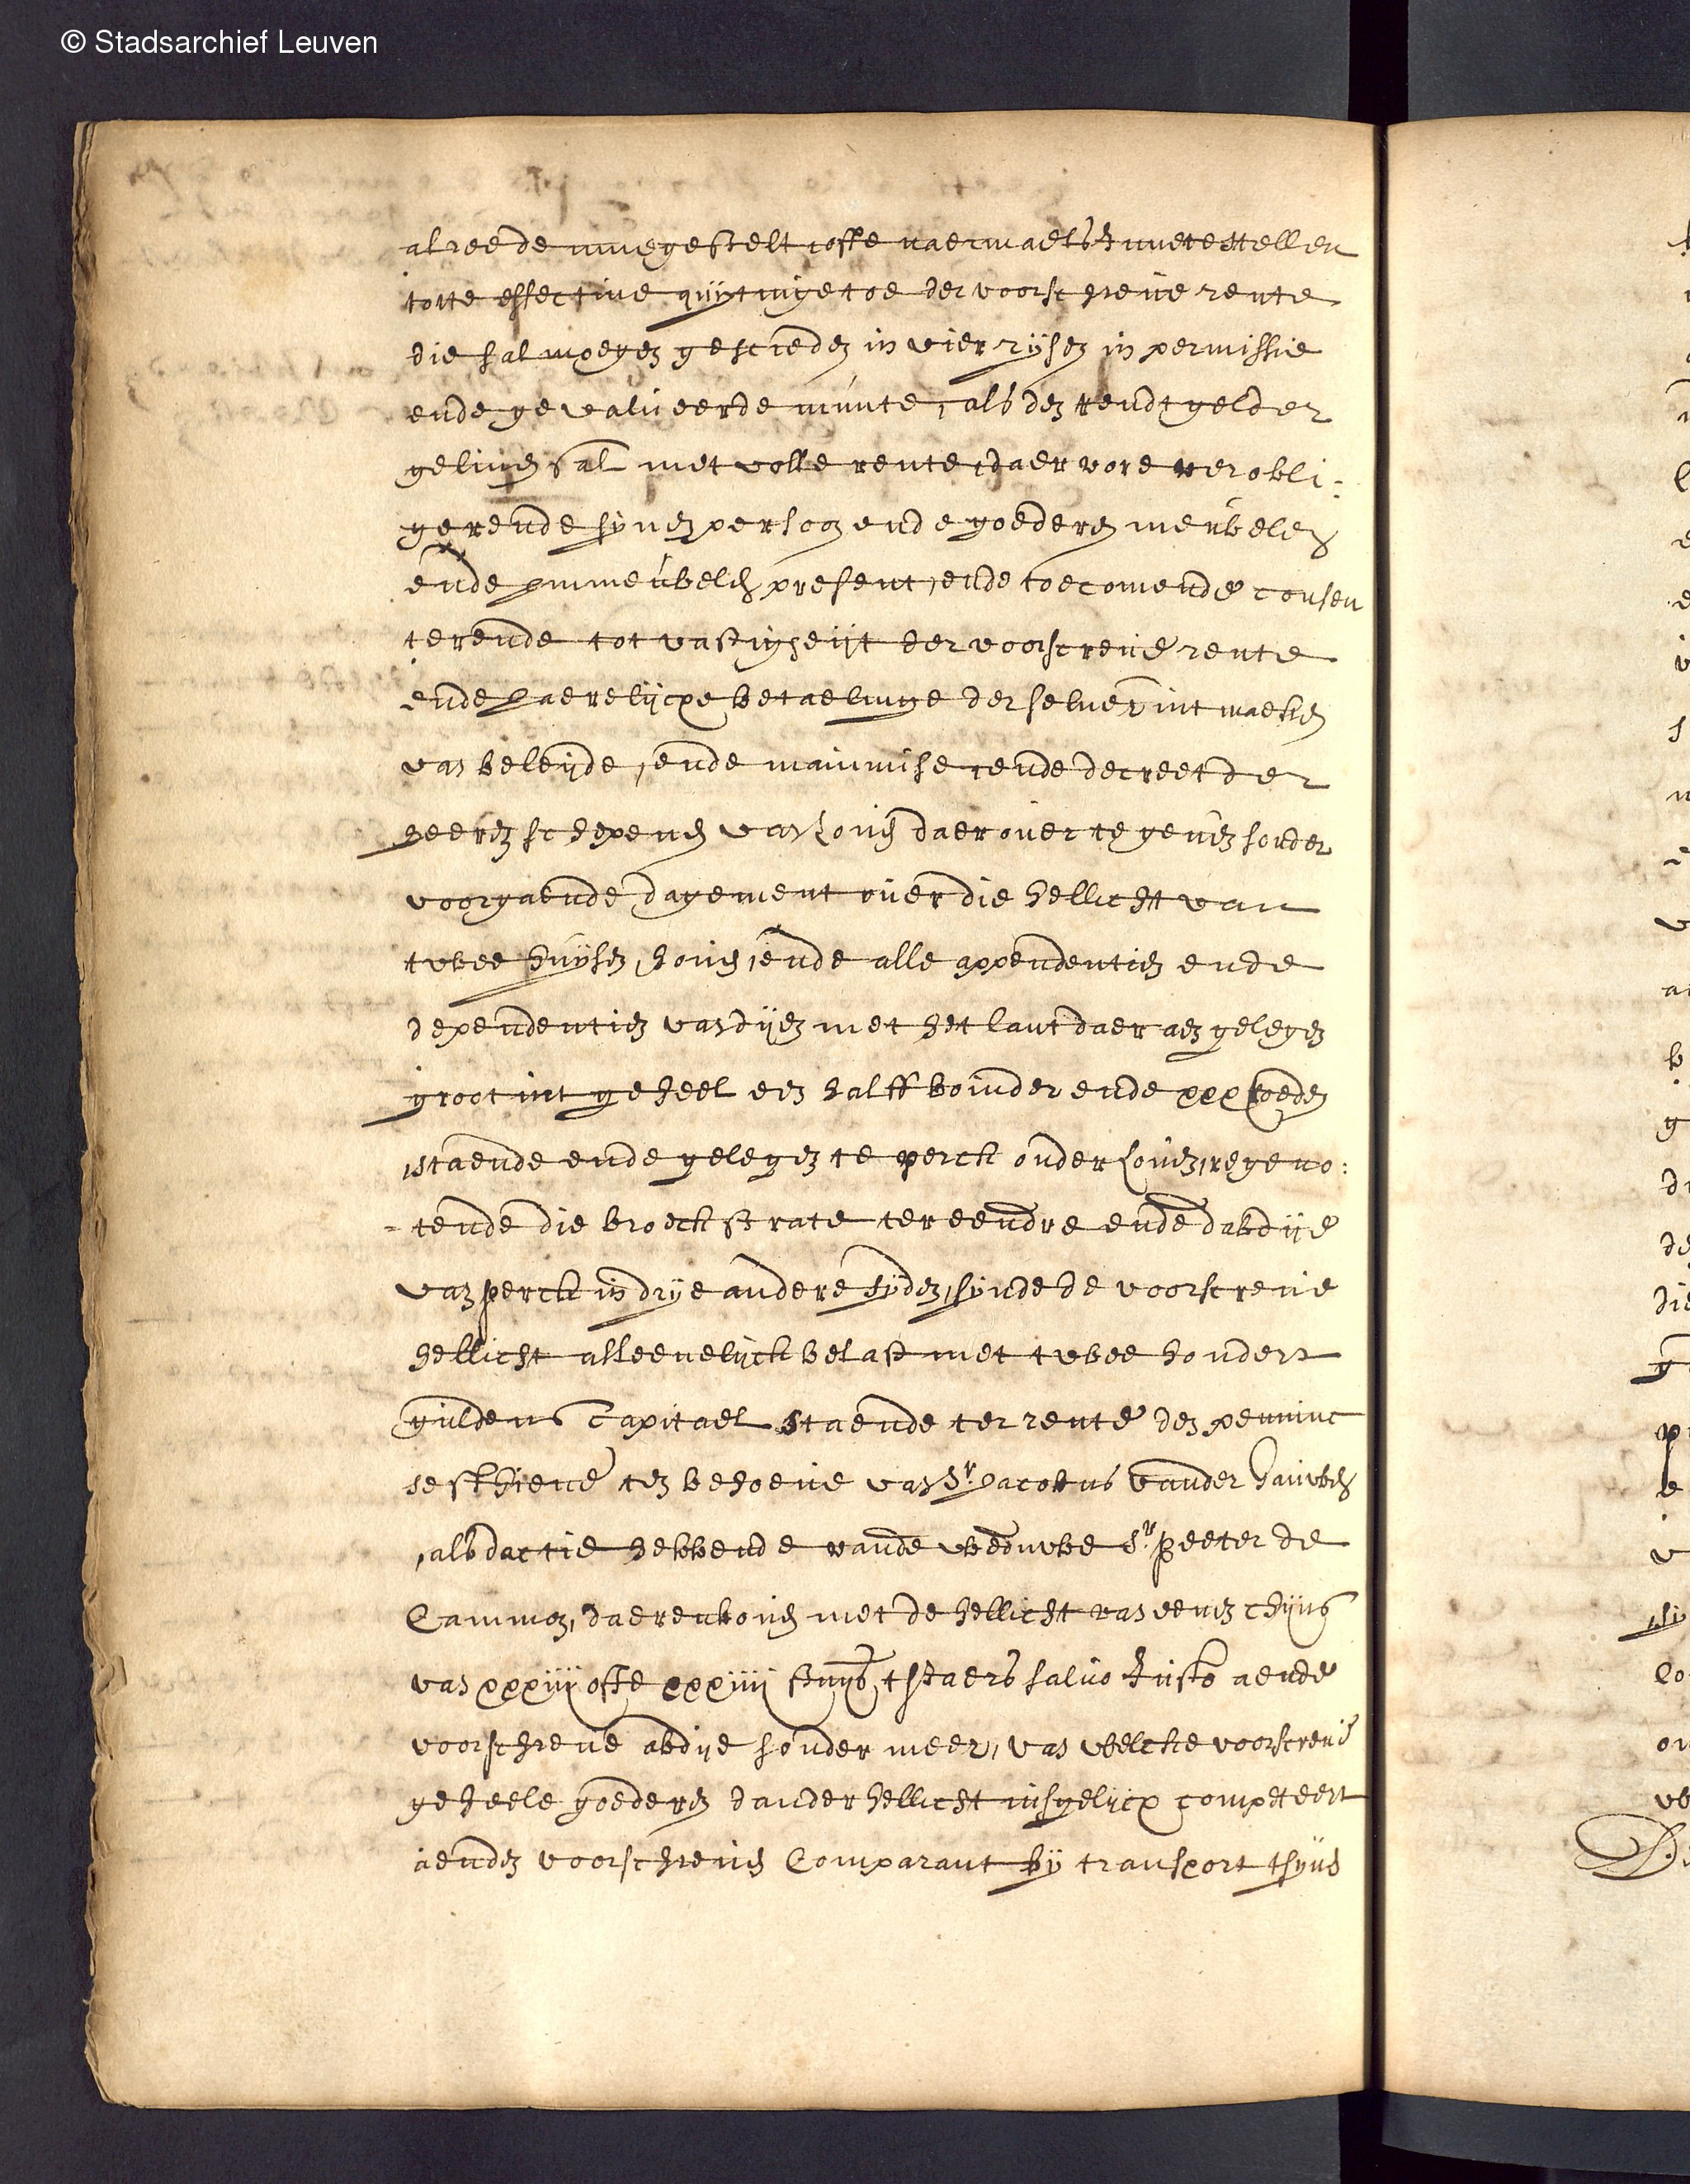 © Stadsarchief Leuven
alreede innegestelt ofte naermaels Innetestellen
totte effective quytinge toe der voorschreve rente
die sal moegen geschieden in vier rysen in permissie
ende gevalueerde munte, als den rendtgelder
gelieven sal met volle rente daer vore verobli:
gerende synen persoon ende goederen meubelen
ende ymmeubelen present, ende toecomende consen
terende tot vasticheyt der voorscreve rente
ende Jaerelycxe betaelinge derselver int maeken
van beleyde, ende mainmise ende decreet der
heeren schepenen van Loven daerover te geven sonder
voorgaende dagement over die hellicht van
twee huysen, hoven, ende alle appendentien ende
dependentien van dyen met het lant daer aen gelegen
groot int geheel een halff boinder ende xxx roeden
staende ende gelegen te perck onder Loven, regeno:
tende die broeckstrate ter eendre ende dabdye
van perck in drye andere syden, synde de voorscreve
hellicht alleenelyck belast met twee hondert
guldens Capitael staende ter rente den penninc
sesthiene ten behoeve van Sr. Jacobus vander hauwen
als dactie hebbende vande weduwe Sr. peeter de
Cammon, daerenboven met de hellicht van eenen chyns
van xxxiiij ofte xxxiiij stuyvers tsJaers salvo Justo aende
voorschreve abdye sonder meer, van welcke voorscreve
geheele goederen dander hellicht insgelycx competeert
aenden voorschreven Comparant by transport tsyns